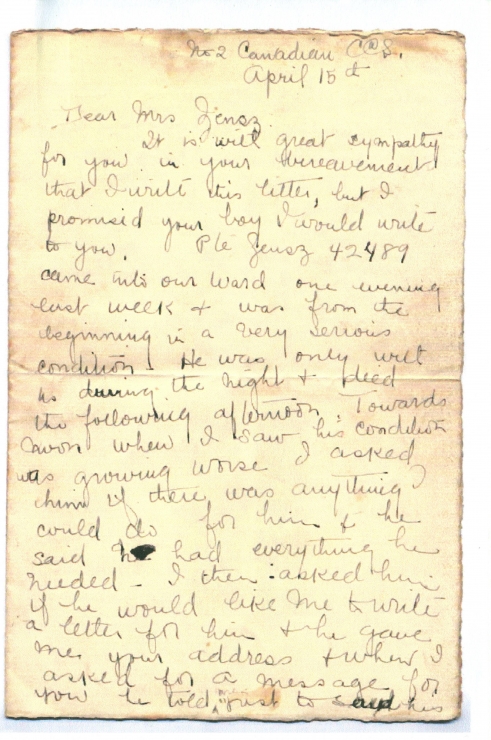 No 2 Canadian CCS.
April 15th
Dear Mrs Jensz
It is with great sympathy
for you in your bereavement
that I write this letter, but I
promised your boy I would write
to you. Pte Jensz 42489
came into our ward one evening
last week & was from the
beginning in a very serious
condition. He was only with
us during the night & died
the following afternoon. Towards
noon when I saw his condition
was growing worse I asked
him if there was anything I
could do for him & he
said he had everything he
needed - I then asked him
if he would like me to write
a letter for him & he gave
me your address & when I
asked for a message for
you he told "just to send his